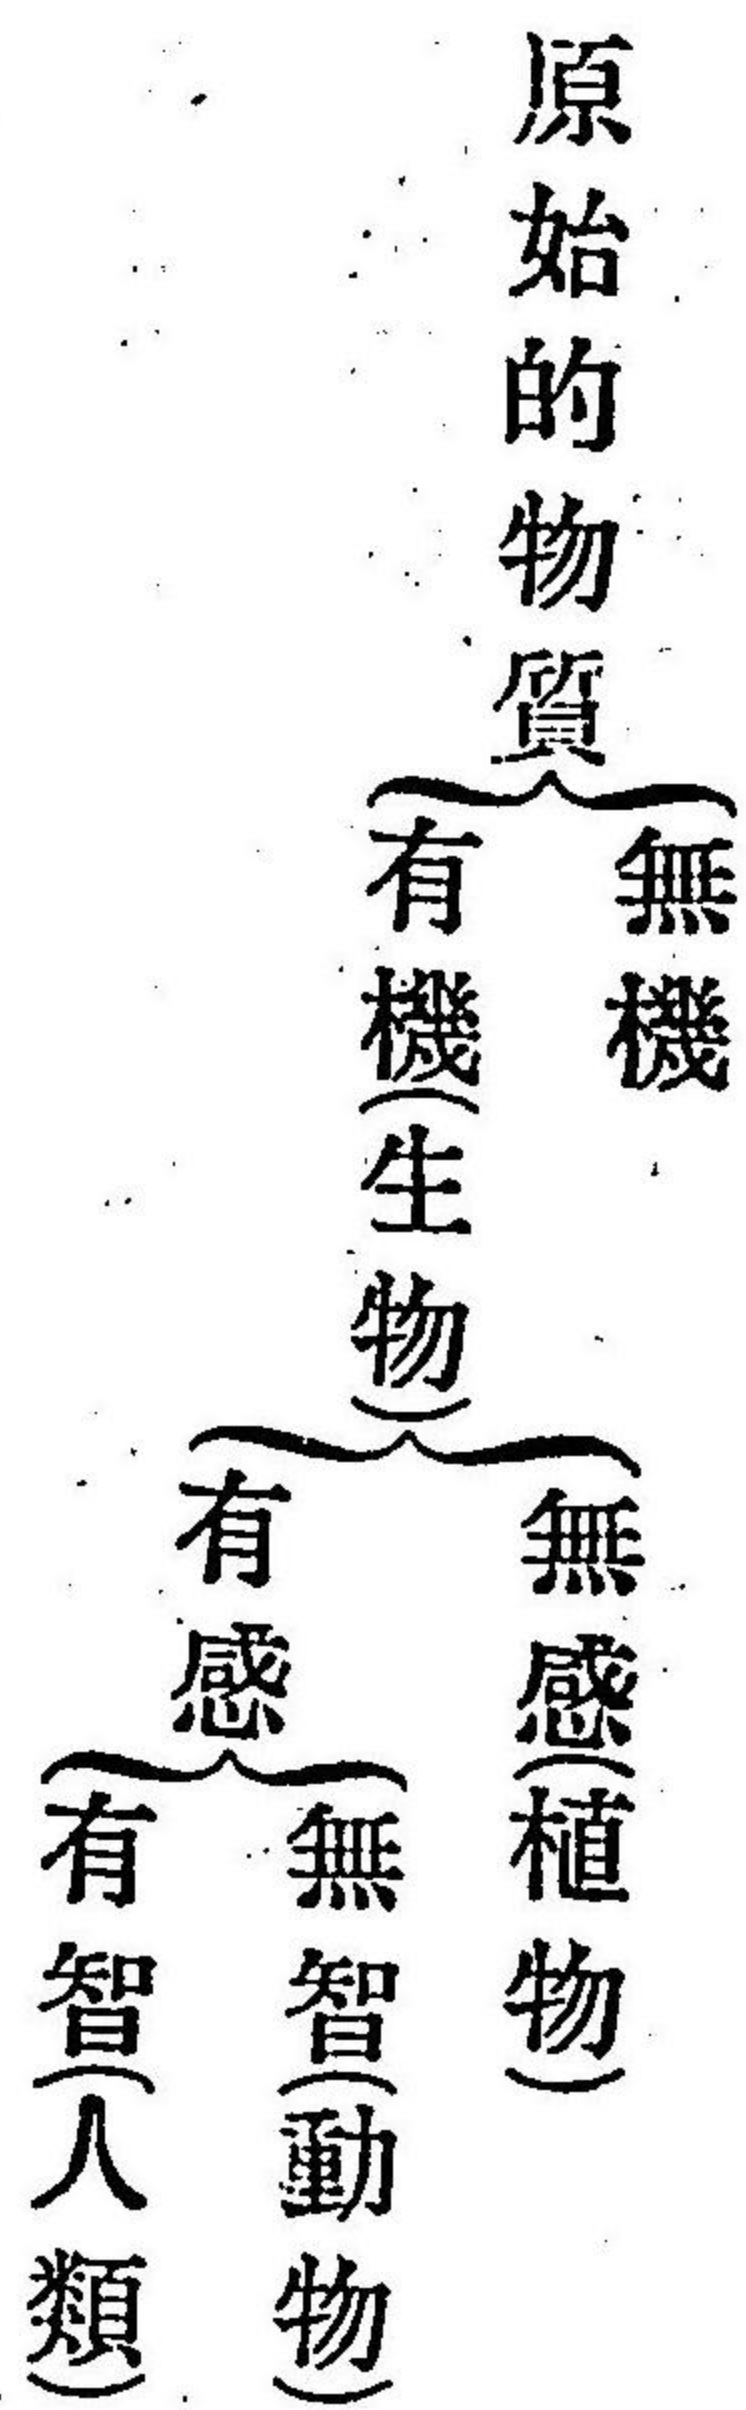 原始的物質
無機
有機(生物)
無感(植物)
有感
無智(動物)
有智(人類)